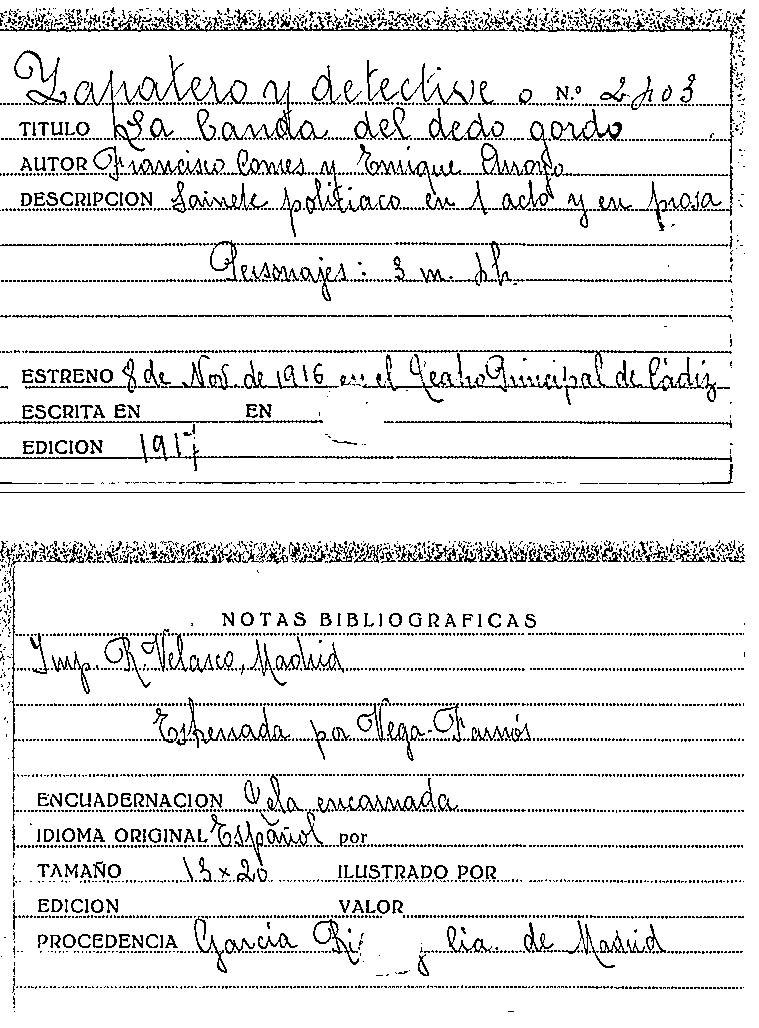 Zapatero y detective o N.º 2403
TITULO La banda del dedo gordo
AUTOR Francisco Comes y Enrique Arroyo
DESCRIPCION Sainete politiaco en 1 acto y en prosa
Personajes: 3 m. 4 h.
ESTRENO 8 de Nov. de 1916 en el Teatro Principal de Cádiz
ESCRITA EN EN
EDICION 1917
NOTAS BIBLIOGRAFICAS
Imp. R. Velasco, Madrid
Estrenada por Vega-
ENCUADERNACION Tela encarnada
IDIOMA ORIGINAL Español por
TAMAÑO 13 x 20 ILUSTRADO POR
EDICION VALOR
PROCEDENCIA García y Cia. de Madrid